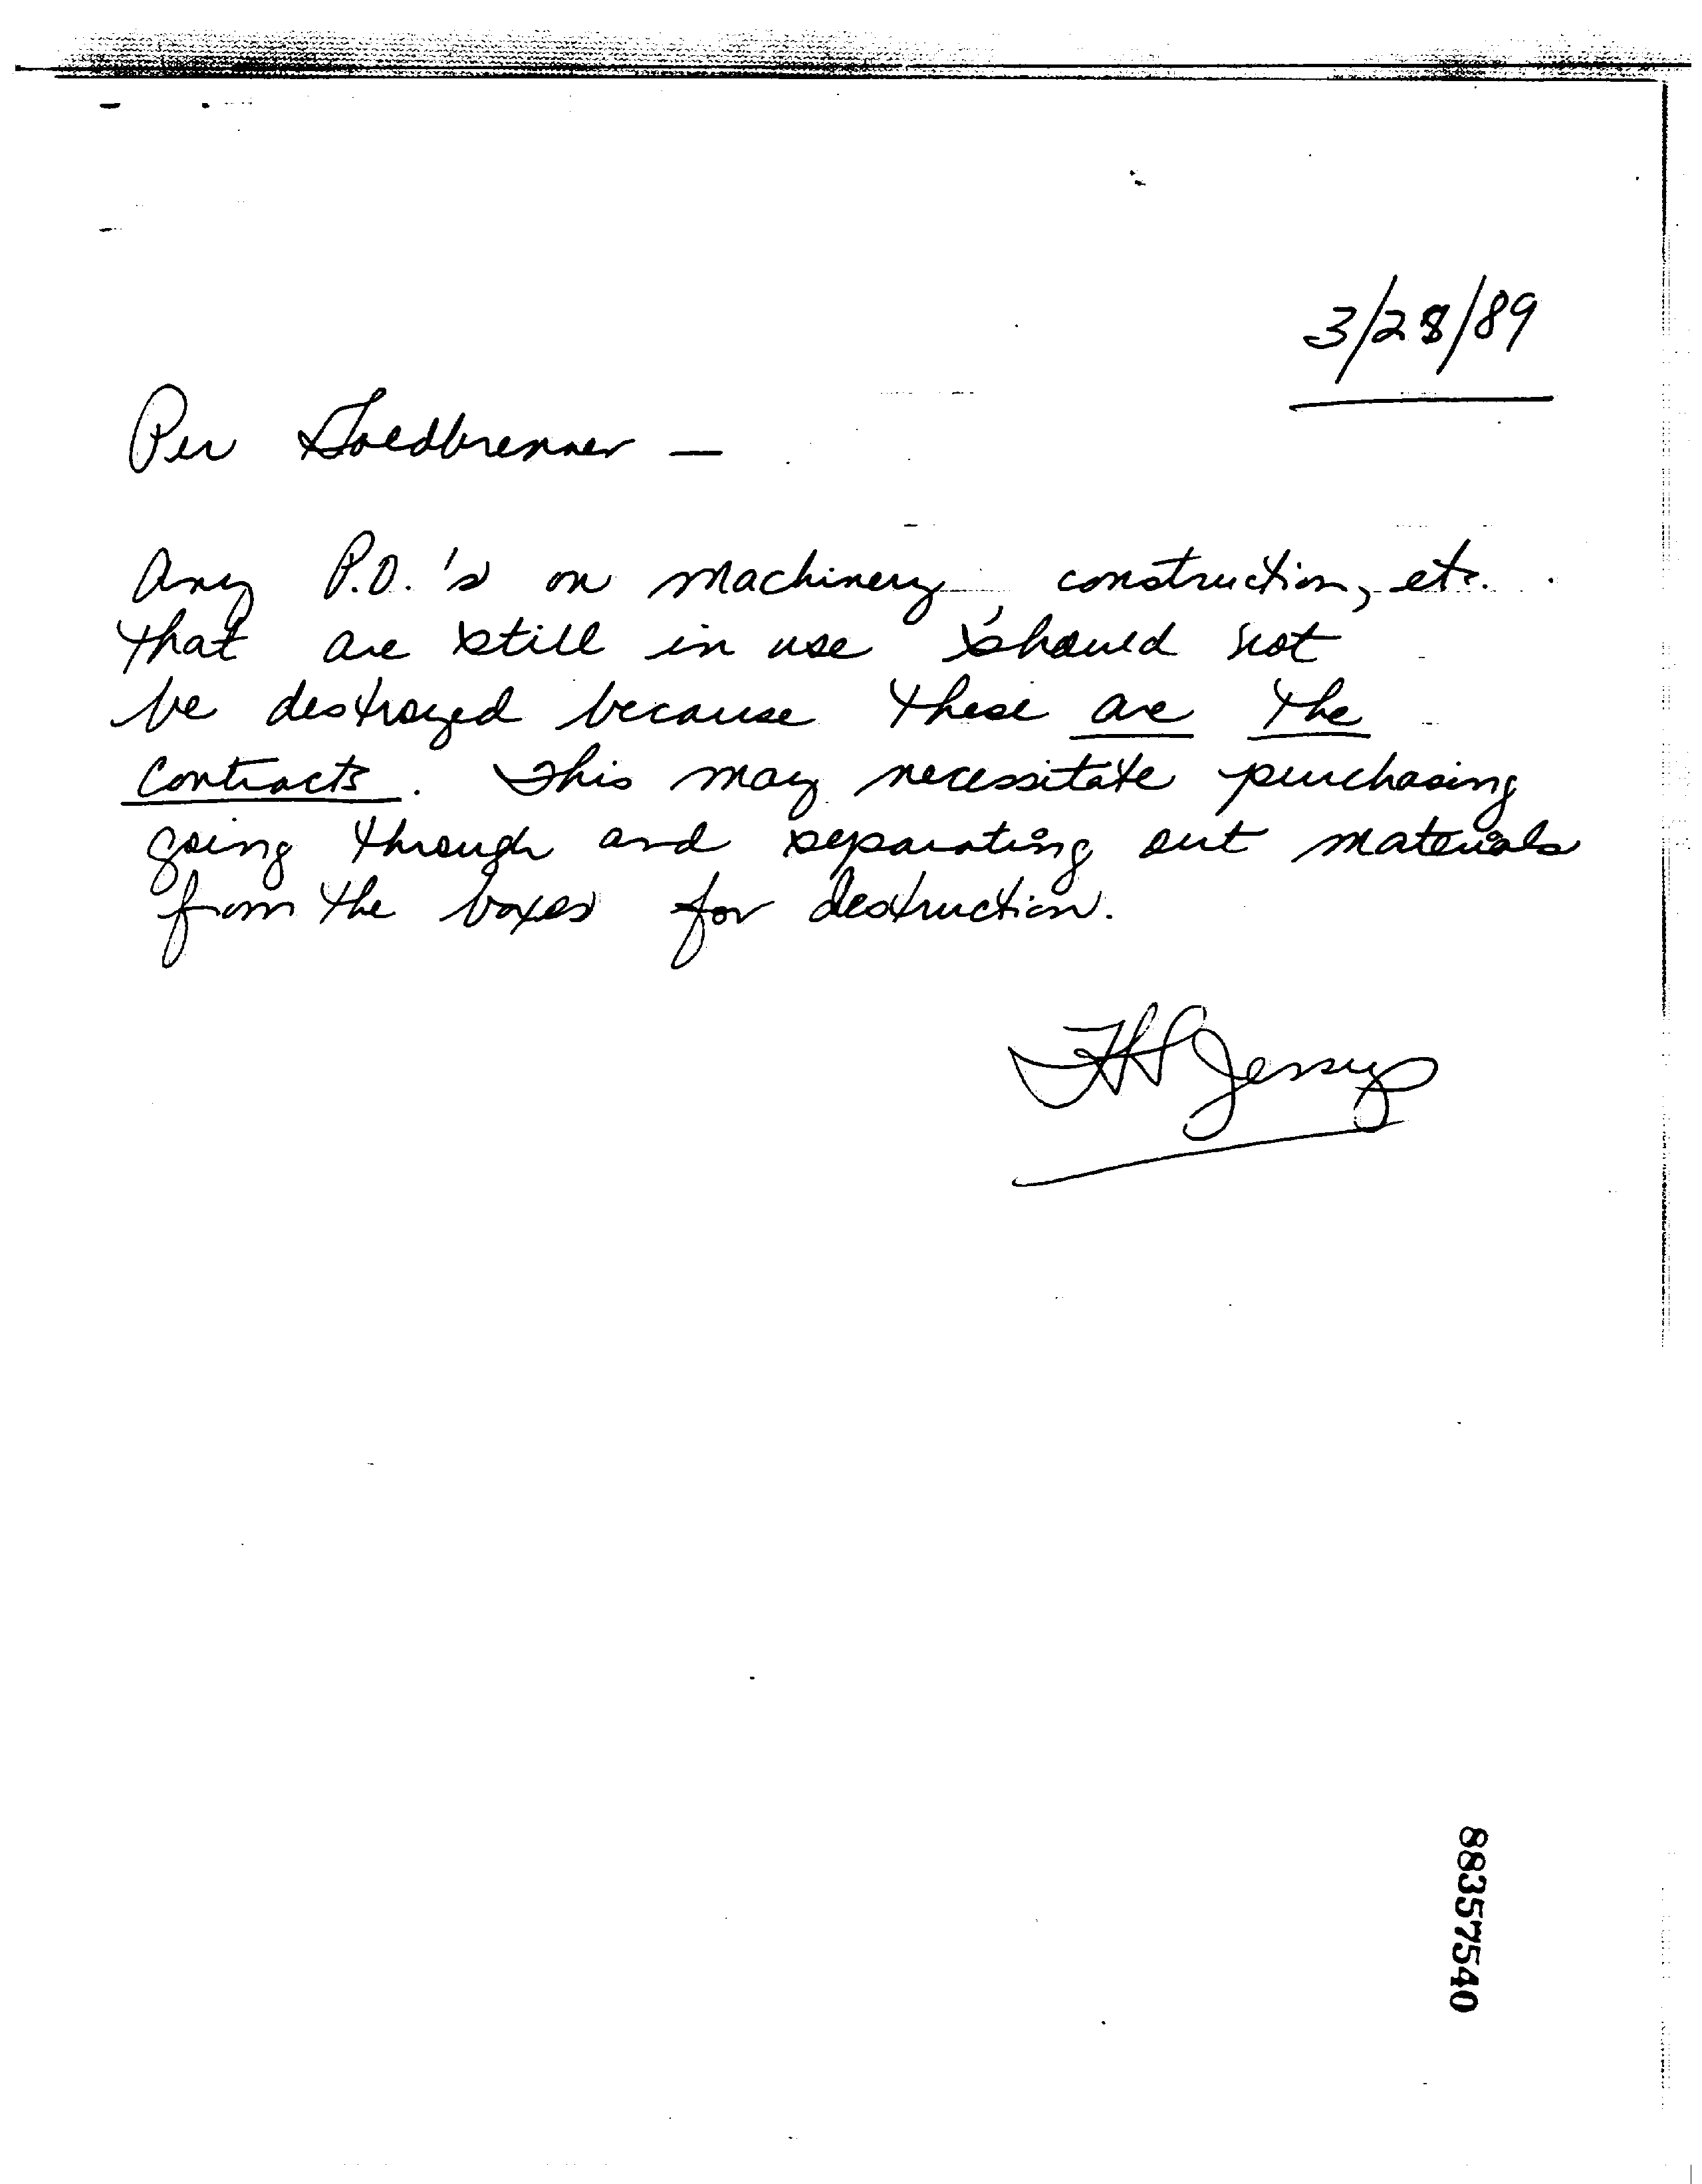 3/28/89
Per Goldbrenner —
Any P.O.'s on machinery, construction, etc.
that are still in use should not
be destroyed because these are the
contracts. This may necessitate purchasing
going through and separating out materials
from the boxes for destruction.
Jessup
88357540